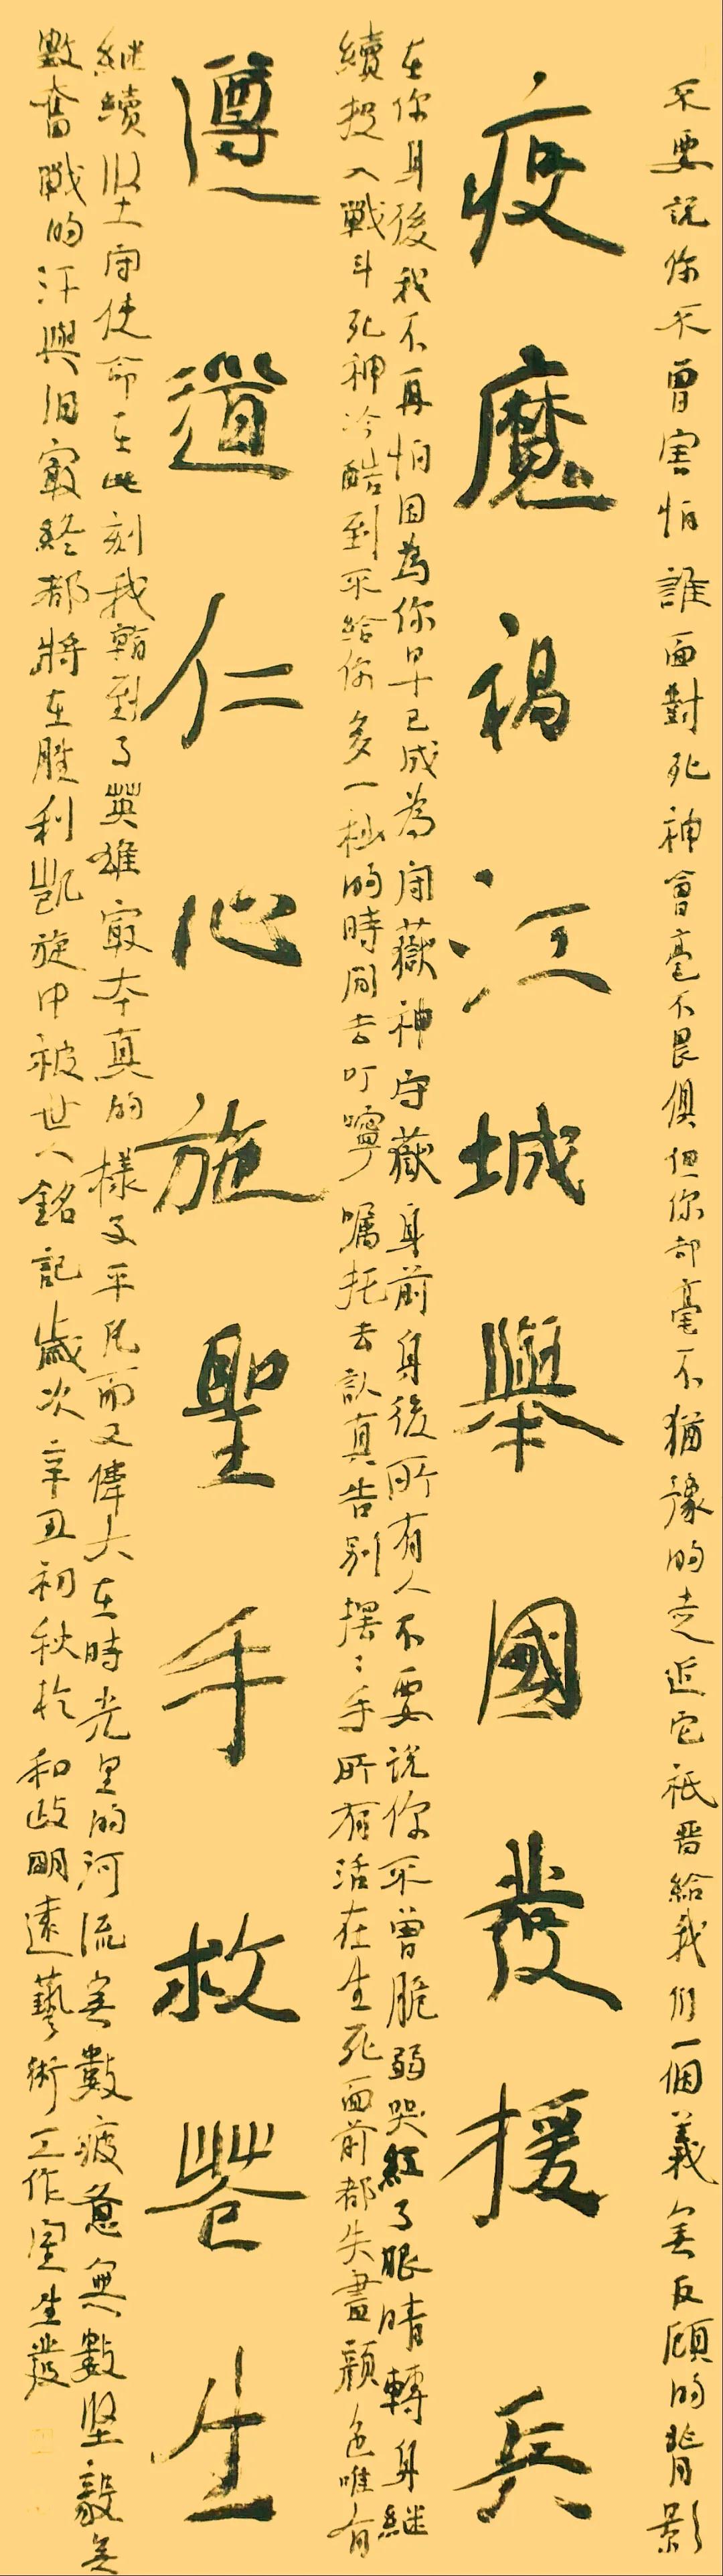 不要說你不曾害怕誰面對死神會毫不畏俱但你卻毫不猶豫的走近它祇留給我們一個義無反顧的背影
疫魔禍江城舉國發援兵
在你身後我不再怕因為你早已成為守護神守護身前身後所有人不要說你不曾脆弱哭紅了眼睛轉身継
續投入戰斗死神冷酷到不給你多一秒的時間去叮嚀嘱托去認真告别揮揮手所有活在生死面前都失盡顏色唯有
遵道仁心施聖手救蒼生
継續堅守使命在此刻我看到了英雄最本真的樣子平凡而又偉大在時光里的河流無數疲憊無數坚毅無
數奮戰的汗與泪最終都將在胜利凱旋中被世人銘記歲次辛丑初秋於和政明遠藝術工作室生發